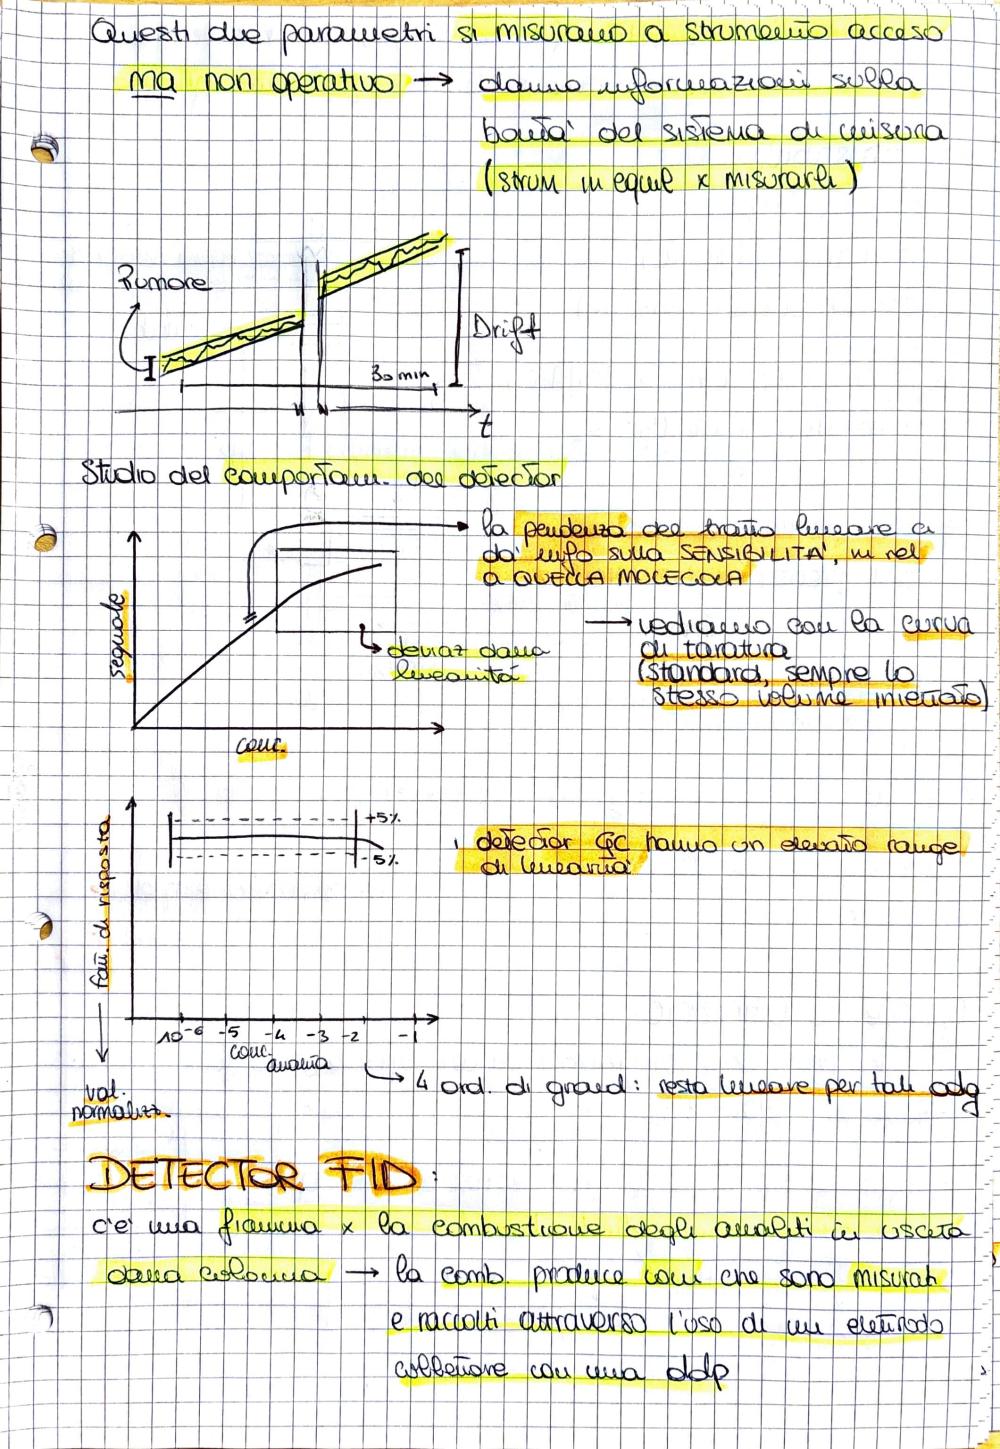 Questi due parametri si misurano a strumento acceso
ma non operativo → danno informazioni sulla
bontà del sistema di misura
(strum in equil x misurarli)
Rumore
Drift
30 min
t
Studio del comportam. del detector
la pendenza del tratto lineare ci
dà info sulla SENSIBILITÀ, in rel
a QUELLA MOLECOLA
segnale
→ vediamo con la curva
di taratura
(standard, sempre lo
stesso volume iniettato)
deviaz dalla
linearità
conc.
+5%
-5%
i detector GC hanno un elevato range
di linearità
fatt. di risposta
10⁻⁶ -5 -4 -3 -2 -1
conc. analita
→ 4 ord. di grand: resta lineare per tali odg
val.
normalizz.
DETECTOR FID:
c'è una fiamma x la combustione degli analiti in uscita
dalla colonna → la comb. produce ioni che sono misurati
e raccolti attraverso l'uso di un elettrodo
collettore con una ddp